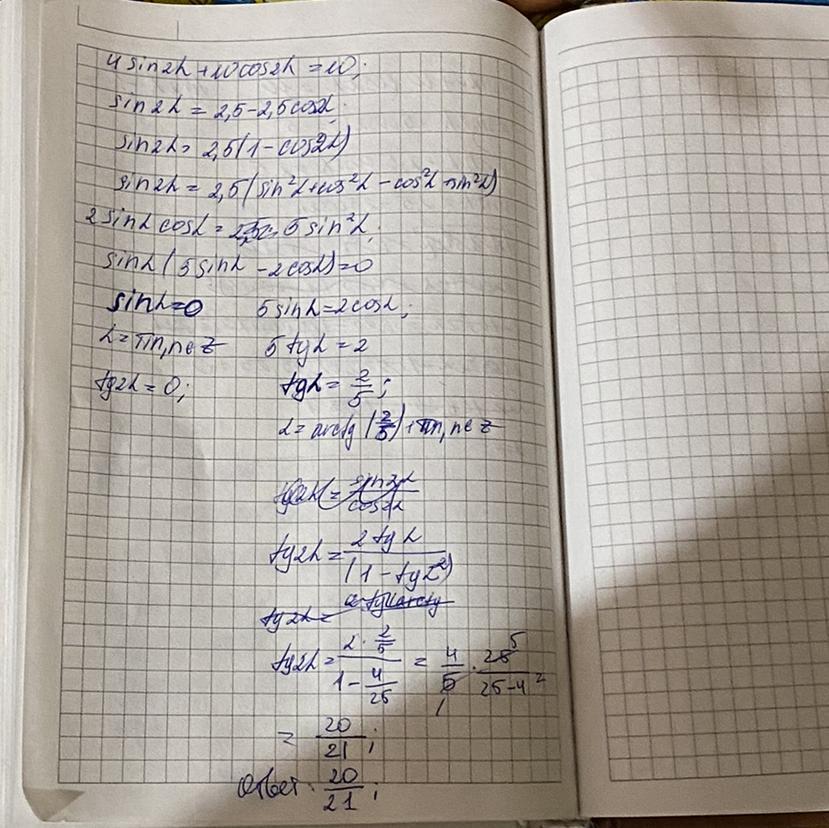 4 sin2α + 10 cos2α = 10;
sin2α = 2,5 - 2,5 cos2α;
sin2α = 2,5(1 - cos2α)
sin2α = 2,5(sin²α + cos²α - cos²α + sin²α)
2 sinα cosα = 5 sin²α;
sinα(5 sinα - 2 cosα) = 0
sinα = 0 5 sinα = 2 cosα;
α = πn, n ∈ Z 5 tgα = 2
tg2α = 0; tgα = 2/5;
α = arctg(2/5) + πn, n ∈ Z
tg2α = sin2α/cos2α
tg2α = 2 tgα/(1 - tgα²)
tg2α =
tg2α = (2 · 2/5)/(1 - 4/25) = 4/5 · 25/(25-4) =
= 20/21;
Ответ: 20/21;